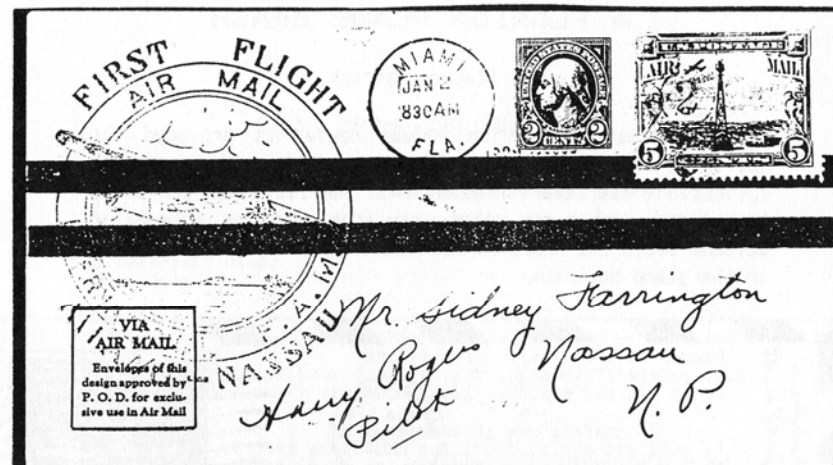 FIRST FLIGHT
AIR MAIL
MIAMI
JAN 2
830AM
FLA.
UNITED STATES POSTAGE
2 CENTS 2
AIR MAIL
5 5
NASSAU
VIA
AIR MAIL
Envelopes of this
design approved by
P. O. D. for exclu-
sive use in Air Mail
Mr Sidney Farrington
Nassau
N. P.
Rogers
Pilot